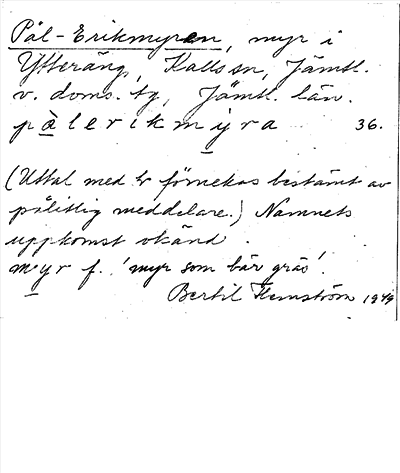 Pål-Erikmyren, myr i
Ytteräng, Kalls sn, Jämtl.
v. doms. tg, Jämtl. län.
pàlerikmyra 36.
(Uttal med tr förnekas bestämt av
pålitlig meddelare.) Namnets
uppkomst okänd.
myr f. 'myr som bär gräs'.
Bertil Flemström 1949